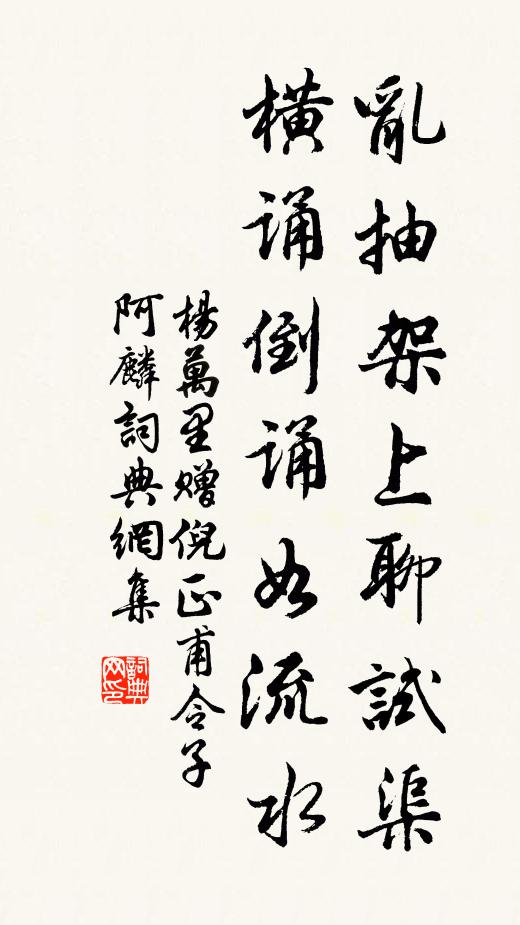 亂抽架上聊試渠
橫誦倒誦如流水
楊萬里贈倪正甫令子
阿麟詞典網集
詞典网印